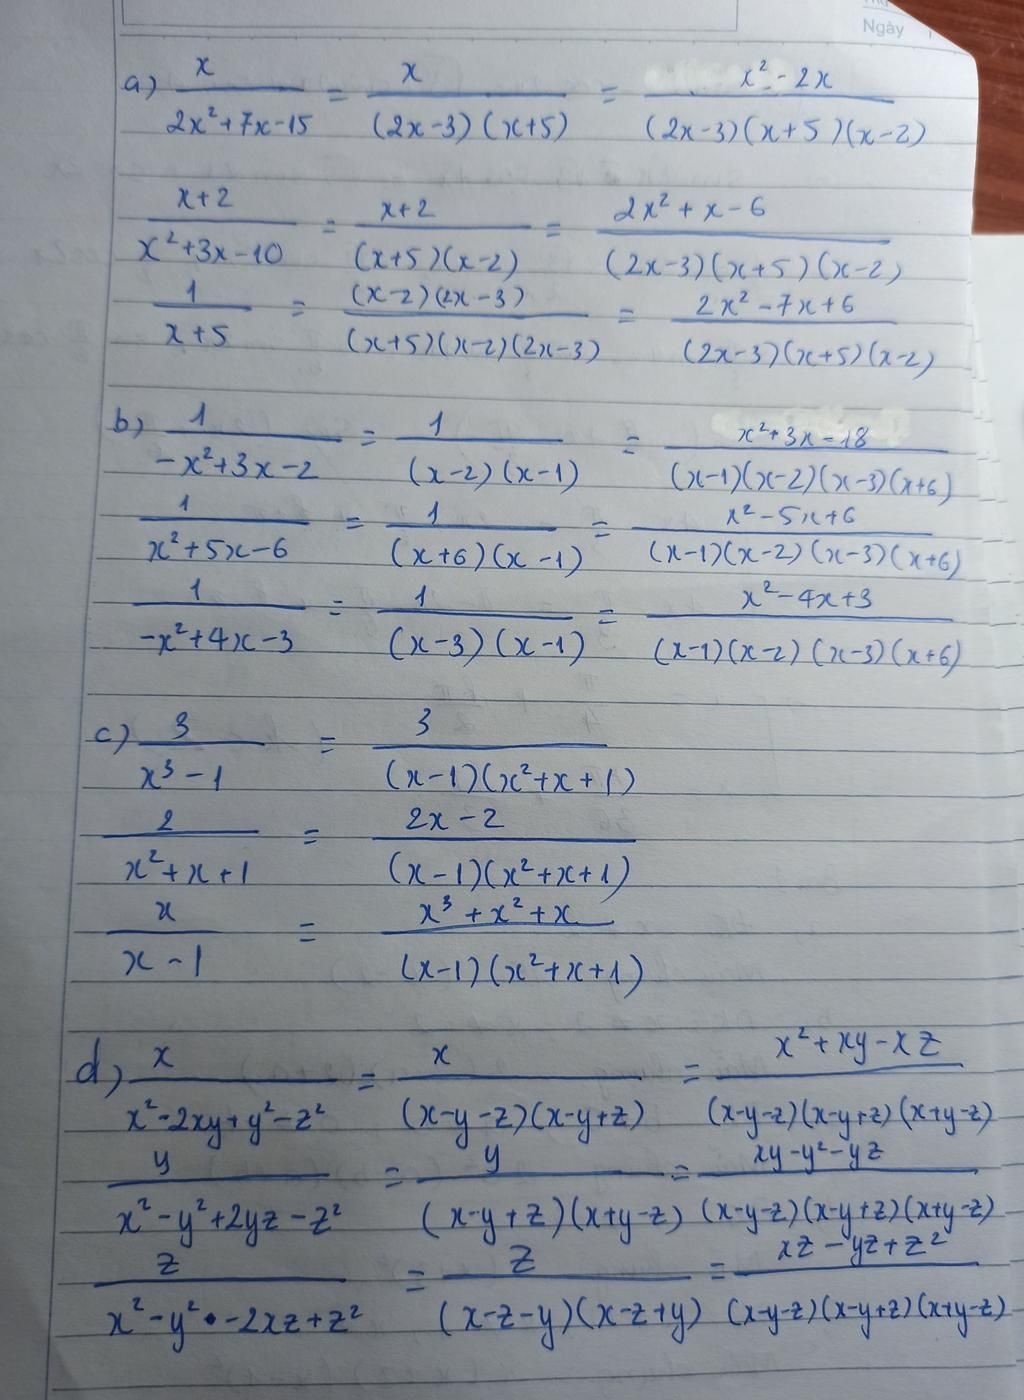 Ngày
a) x/(2x²+7x-15) = x/((2x-3)(x+5)) = (x²-2x)/((2x-3)(x+5)(x-2))
(x+2)/(x²+3x-10) = (x+2)/((x+5)(x-2)) = (2x²+x-6)/((2x-3)(x+5)(x-2))
1/(x+5) = ((x-2)(2x-3))/((x+5)(x-2)(2x-3)) = (2x²-7x+6)/((2x-3)(x+5)(x-2))
b) 1/(-x²+3x-2) = 1/((x-2)(x-1)) = (x²+3x-18)/((x-1)(x-2)(x-3)(x+6))
1/(x²+5x-6) = 1/((x+6)(x-1)) = (x²-5x+6)/((x-1)(x-2)(x-3)(x+6))
1/(-x²+4x-3) = 1/((x-3)(x-1)) = (x²-4x+3)/((x-1)(x-2)(x-3)(x+6))
c) 3/(x³-1) = 3/((x-1)(x²+x+1))
2/(x²+x+1) = (2x-2)/((x-1)(x²+x+1))
x/(x-1) = (x³+x²+x)/((x-1)(x²+x+1))
d) x/(x²-2xy+y²-z²) = x/((x-y-z)(x-y+z)) = (x²+xy-xz)/((x-y-z)(x-y+z)(x+y-z))
y/(x²-y²+2yz-z²) = y/((x-y+z)(x+y-z)) = (xy-y²-yz)/((x-y-z)(x-y+z)(x+y-z))
z/(x²-y²-2xz+z²) = z/((x-z-y)(x-z+y)) = (xz-yz+z²)/((x-y-z)(x-y+z)(x+y-z))